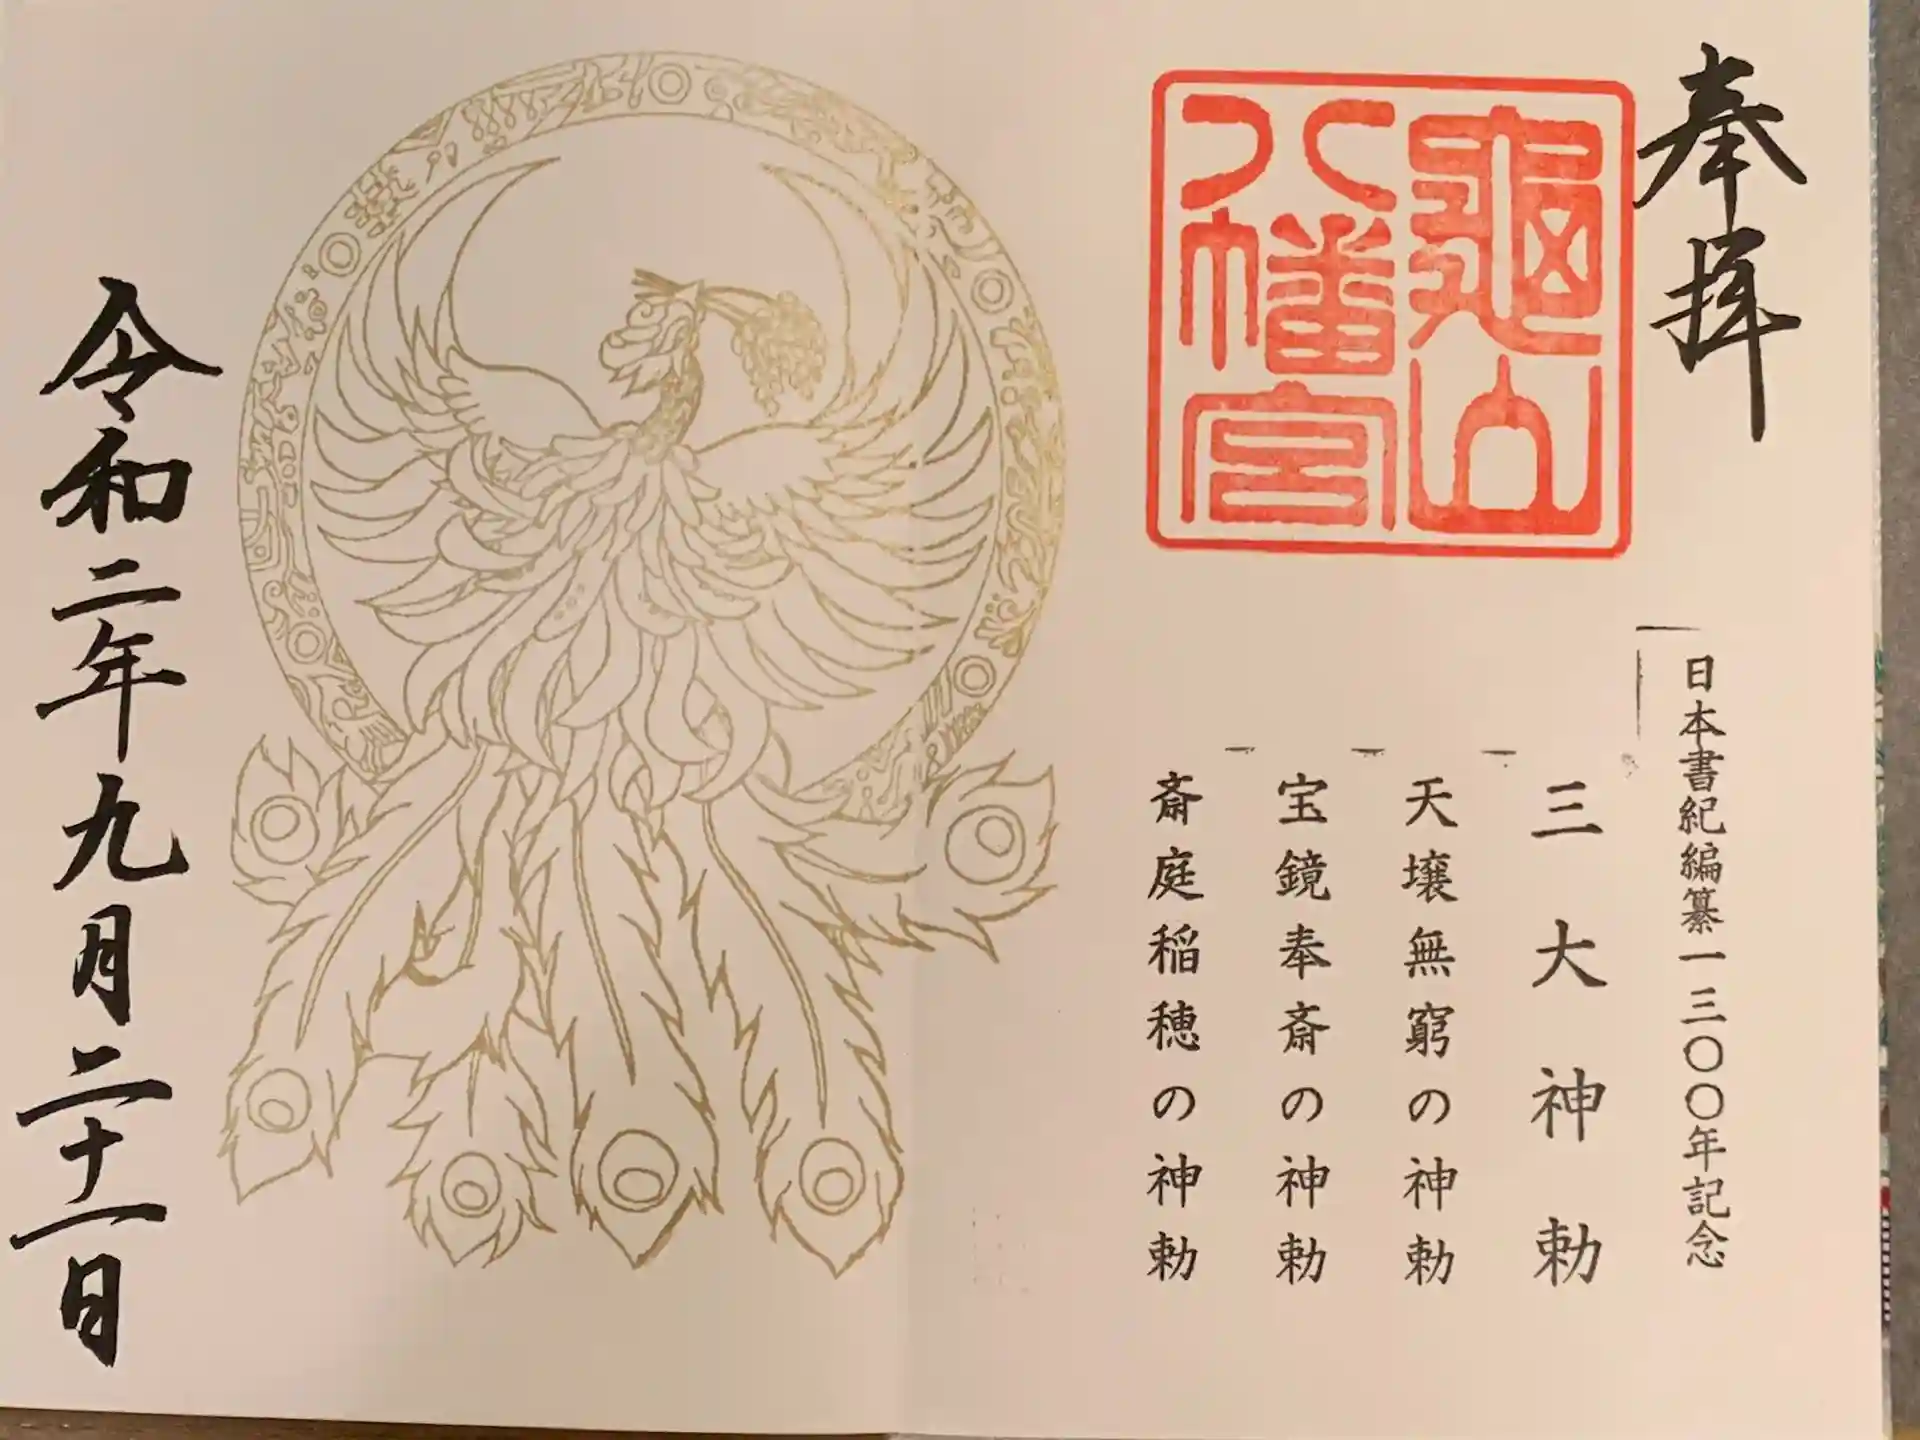 奉拝
亀山
八幡宮
日本書紀編纂一三〇〇年記念
三大神勅
天壌無窮の神勅
宝鏡奉斎の神勅
斎庭稲穂の神勅
令和二年九月二十一日